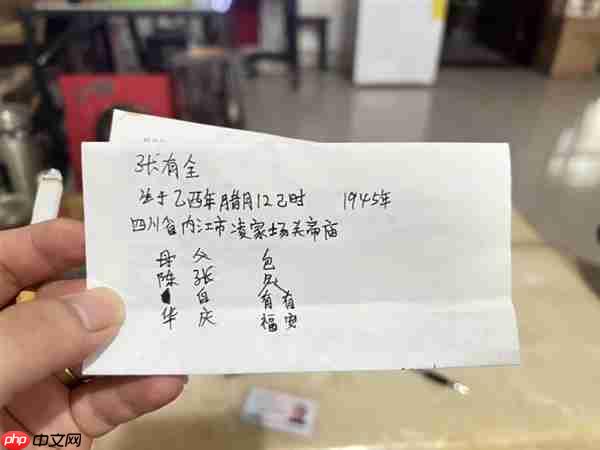 张有全
生于乙酉年腊月12己时 1945年
四川省内江市凌家场关帝庙
母 父 包
陈 张
自 有 有
华 庆 福
php 中文网